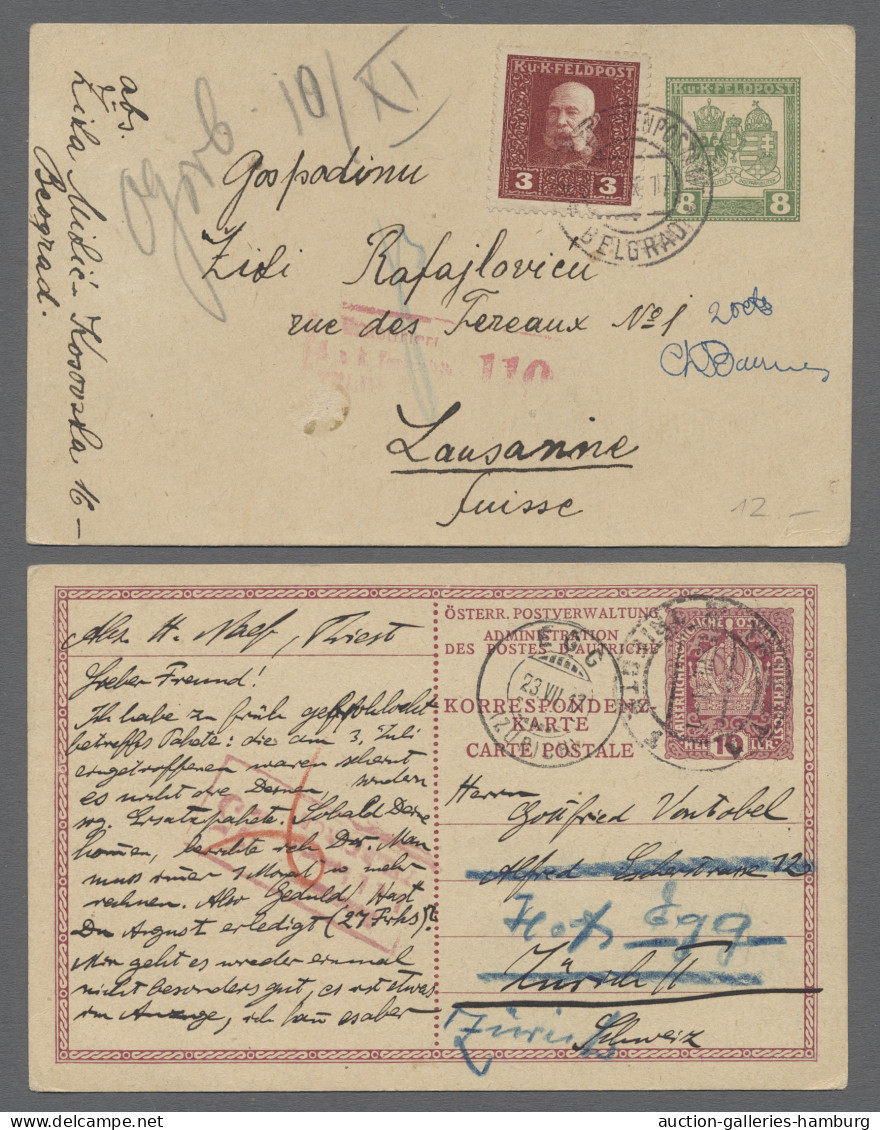 abs.
Žika Midić - Kosovska 16 -
Beograd.
10/XI
K.u.K. FELDPOST
3 3
K.u.K. FELDPOST
8 8
BELGRAD
Gospodinu
Židi Rafajlovicu
rue des Fereaux No 1
110
20cts
Lausanne
Suisse
12 -
Abs. H. Naef, Triest
Lieber Freund!
Ich habe zu früh gefrohlockt
betreffs Pakete: die am 3. Juli
eingetroffenen waren scheint
es nicht die Deinen, sondern
sog. Ersatzpakete. Sobald Deine
kommen, berichte ich Dir. Man
muss immer 1 Monat u. mehr
rechnen. Also Geduld! Hast
Du August erledigt (27 Frks)?
Mir geht es wieder einmal
nicht besonders gut, es ist etwas
im Anzuge, ich kann es aber
ÖSTERR. POSTVERWALTUNG
ADMINISTRATION
DES POSTES D'AUTRICHE
KORRESPONDENZ-
KARTE
CARTE POSTALE
EGG
23.VII.17
(ZÜRICH)
10
Herrn
Gottfried Vontobel
Alfred Escherstrasse 12
Hof Egg
Zürich II
Schweiz
Zürich
auction-galleries-hamburg